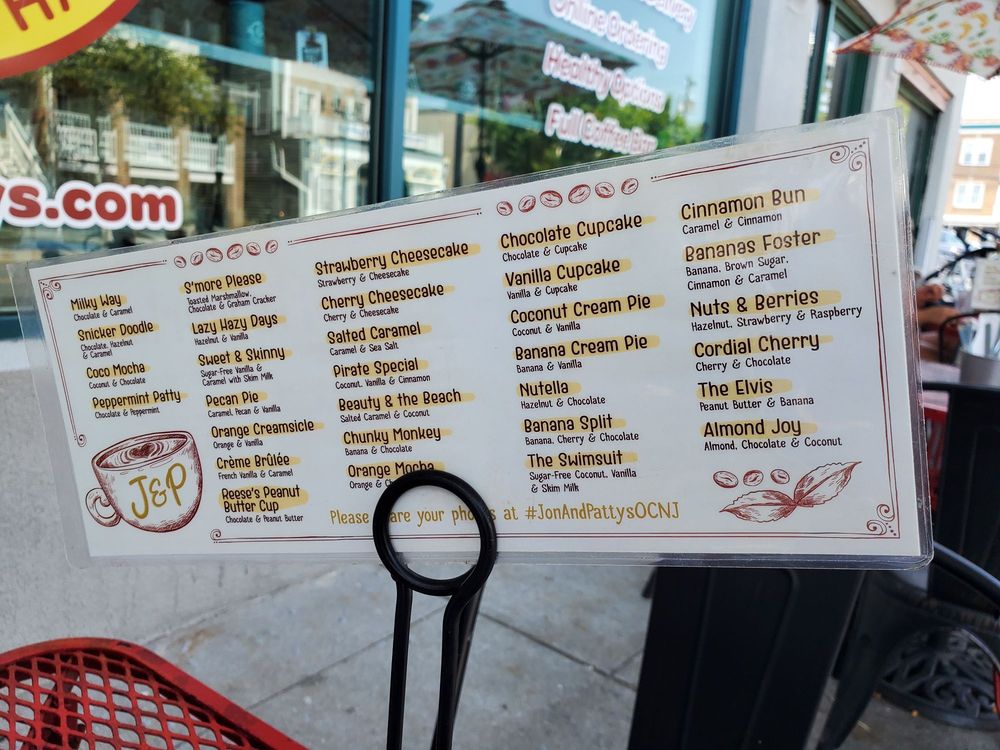 Online Ordering
Healthy Options
Full Coffee Bar
s.com
Milky Way
Chocolate & Caramel
Snicker Doodle
Chocolate, Hazelnut
& Caramel
Coco Mocha
Coconut & Chocolate
Peppermint Patty
Chocolate & Peppermint
J&P
S'more Please
Toasted Marshmallow,
Chocolate & Graham Cracker
Lazy Hazy Days
Hazelnut & Vanilla
Sweet & Skinny
Sugar-Free Vanilla &
Caramel with Skim Milk
Pecan Pie
Caramel, Pecan & Vanilla
Orange Creamsicle
Orange & Vanilla
Crème Brûlée
French Vanilla & Caramel
Reese's Peanut
Butter Cup
Chocolate & Peanut Butter
Strawberry Cheesecake
Strawberry & Cheesecake
Cherry Cheesecake
Cherry & Cheesecake
Salted Caramel
Caramel & Sea Salt
Pirate Special
Coconut, Vanilla & Cinnamon
Beauty & the Beach
Salted Caramel & Coconut
Chunky Monkey
Banana & Chocolate
Orange Mocha
Orange &
Chocolate Cupcake
Chocolate & Cupcake
Vanilla Cupcake
Vanilla & Cupcake
Coconut Cream Pie
Coconut & Vanilla
Banana Cream Pie
Banana & Vanilla
Nutella
Hazelnut & Chocolate
Banana Split
Banana, Cherry & Chocolate
The Swimsuit
Sugar-Free Coconut, Vanilla
& Skim Milk
Cinnamon Bun
Caramel & Cinnamon
Bananas Foster
Banana, Brown Sugar,
Cinnamon & Caramel
Nuts & Berries
Hazelnut, Strawberry & Raspberry
Cordial Cherry
Cherry & Chocolate
The Elvis
Peanut Butter & Banana
Almond Joy
Almond, Chocolate & Coconut
Please are your at #JonAndPattysOCNJ